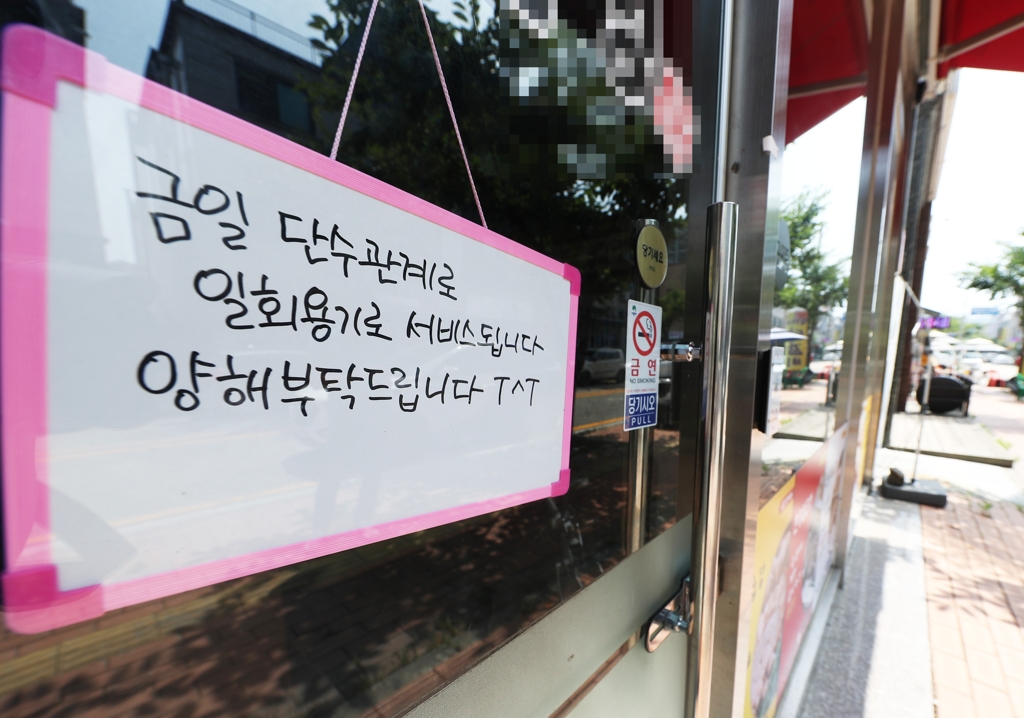 금일 단수관계로
일회용기로 서비스됩니다
양해부탁드립니다 T^T
당기세요
금연
NO SMOKING
당기시오
PULL